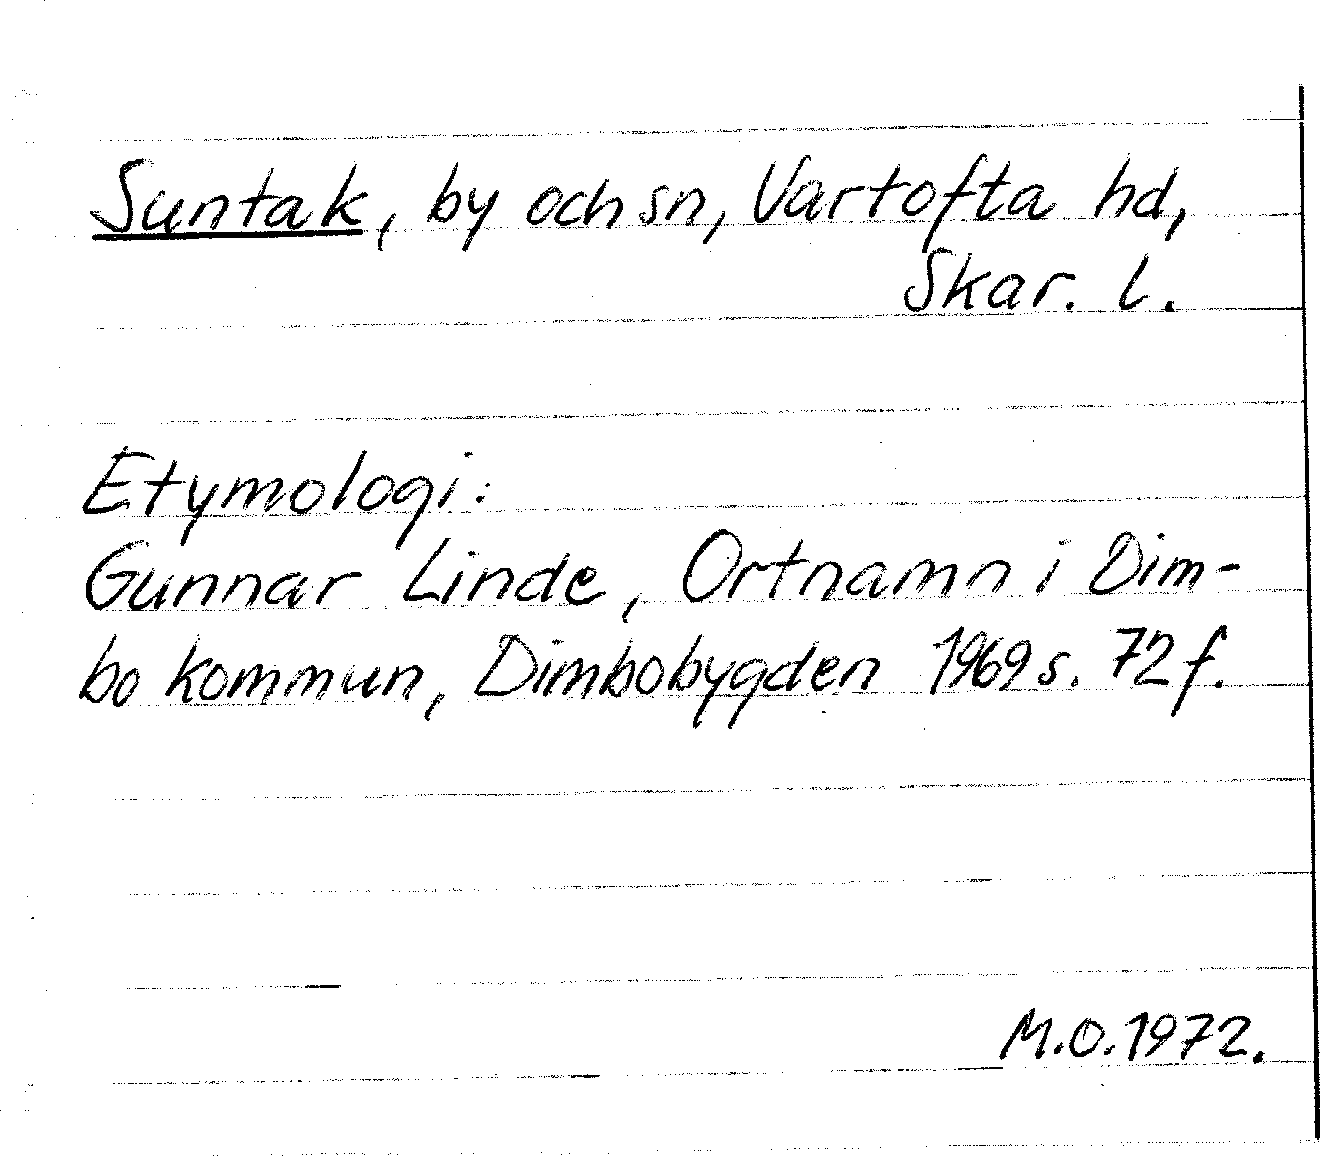 Suntak, by och sn, Vartofta hd,
Skar. l.
Etymologi:
Gunnar Linde, Ortnamn i Dim-
bo kommun, Dimbobygden 1969 s. 72 f.
M.O. 1972.